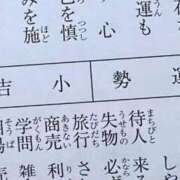 運も
心
己を慎
みを施
運勢
小吉
待人 来る
失物 必
旅行 さ
商売 利
学問 雑
相場